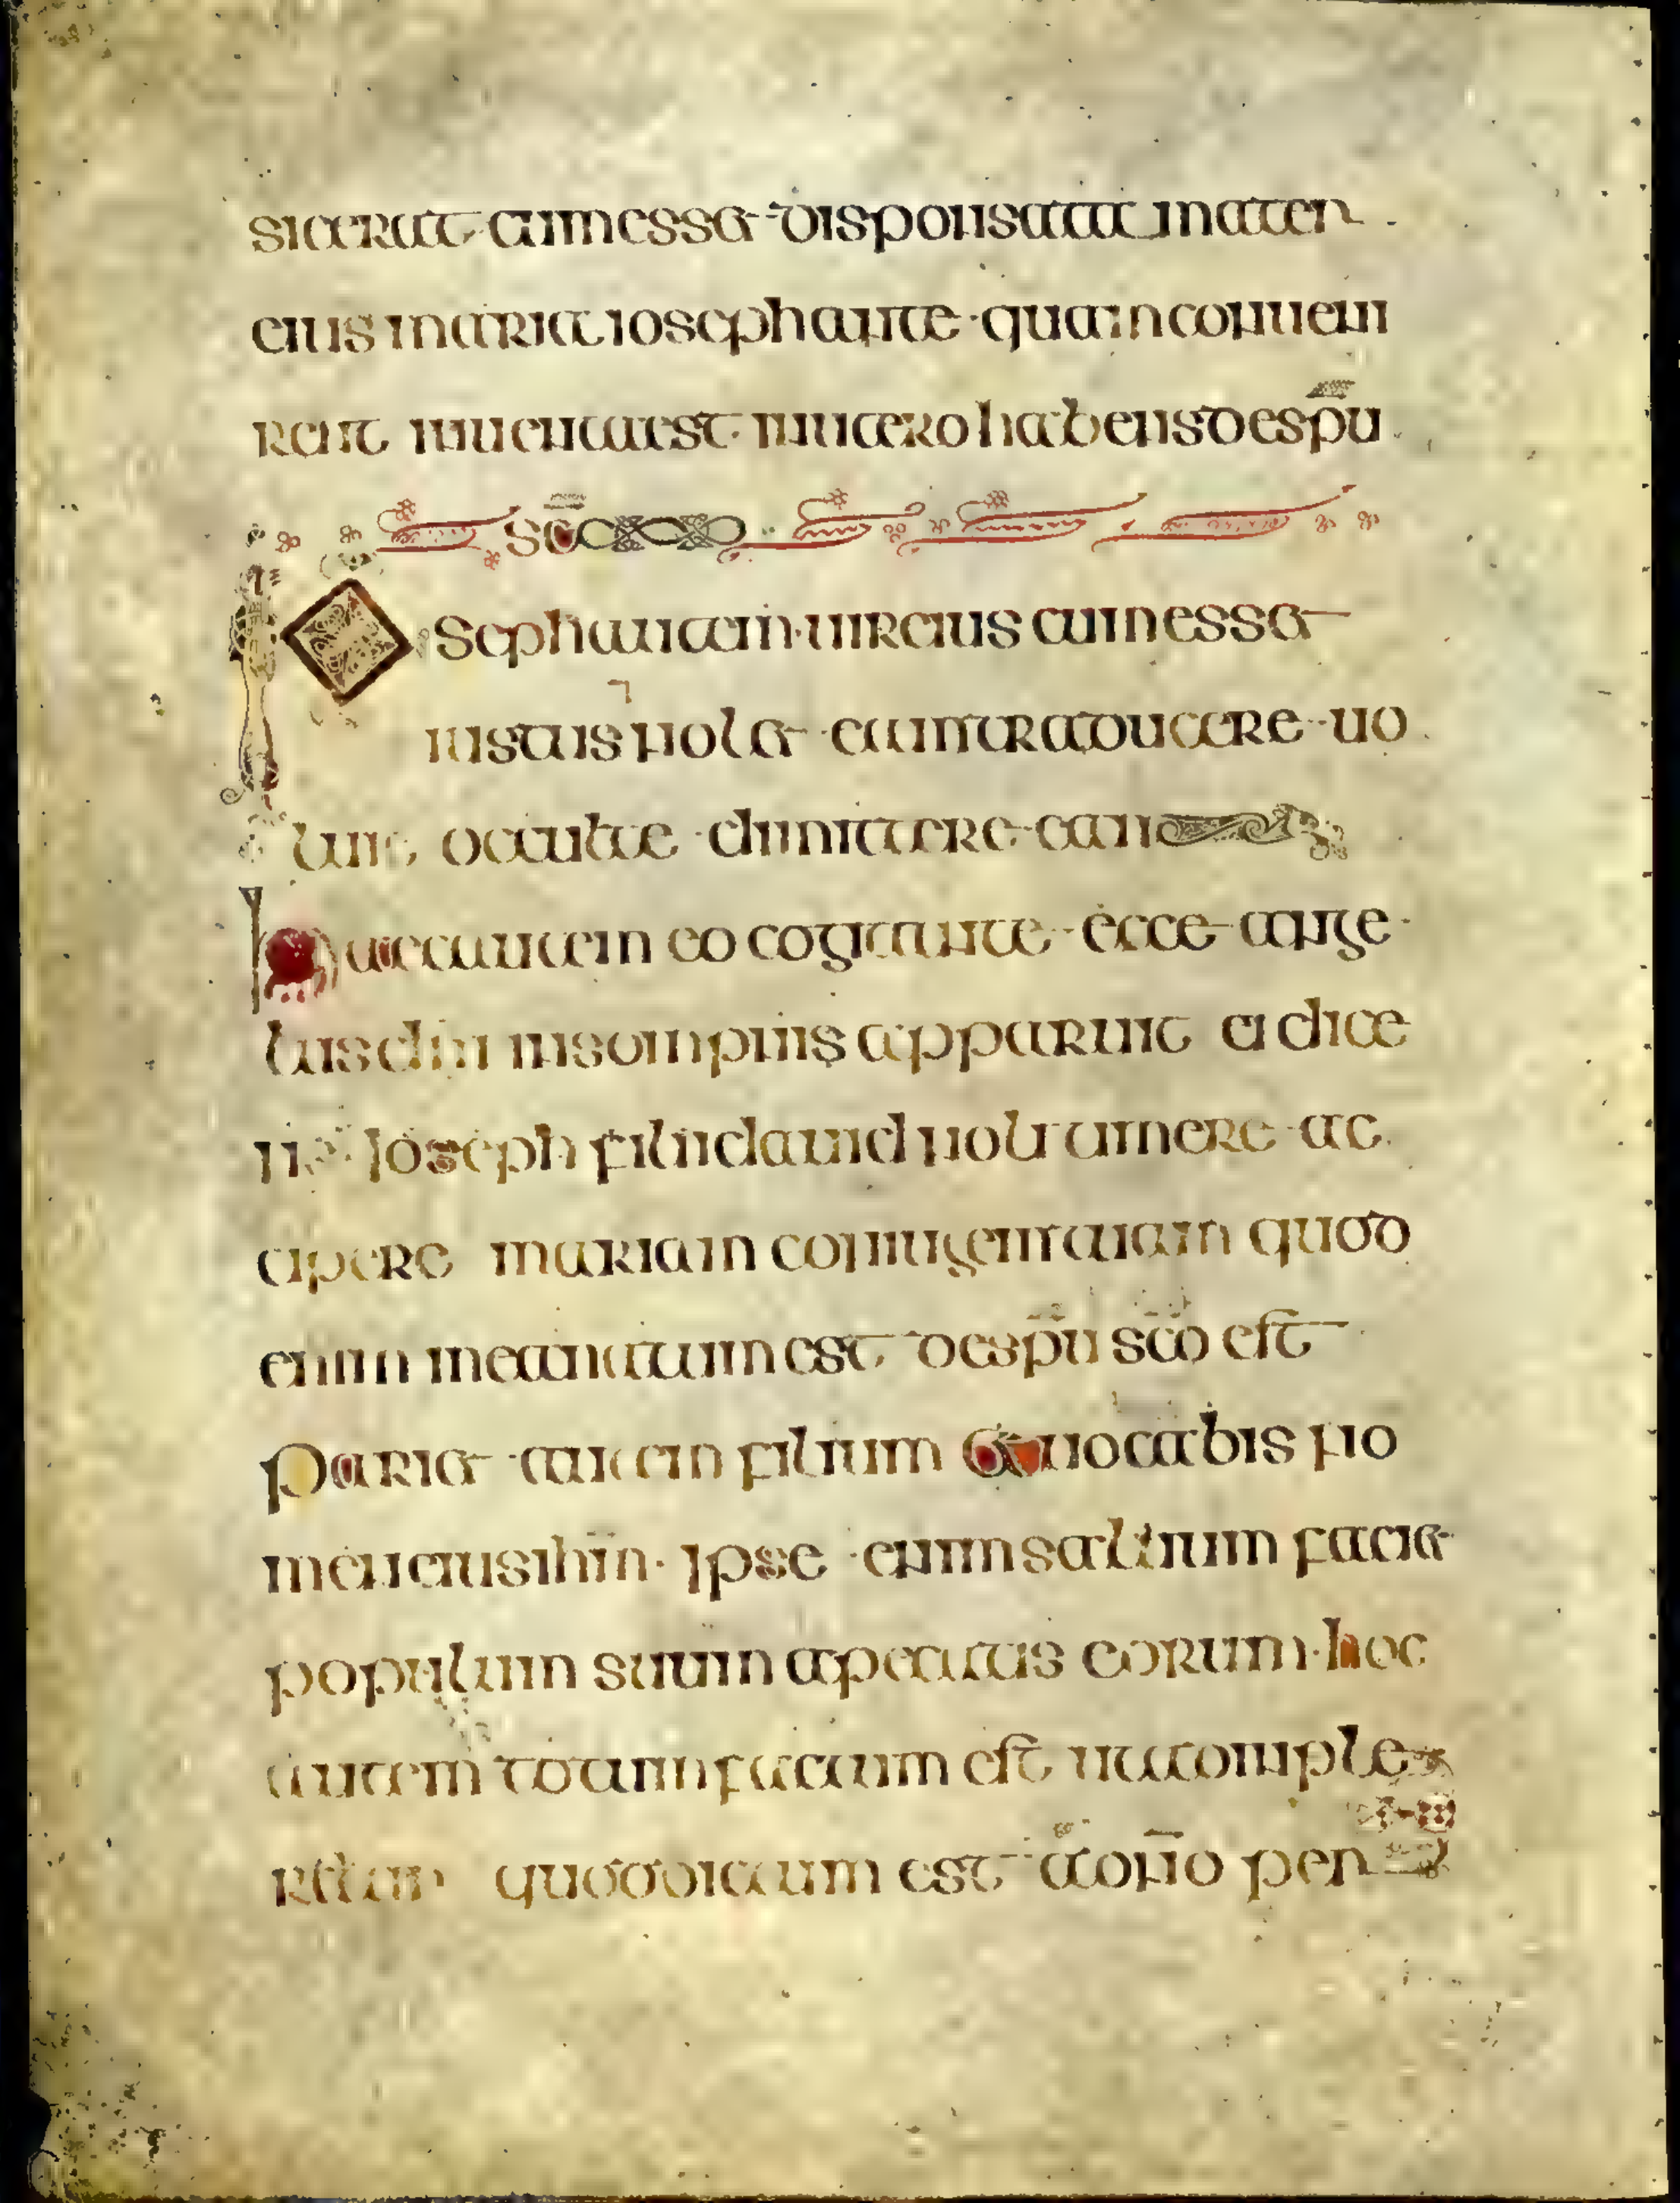 sic erat cum esset disponsata mater
eius maria ioseph ante quam conueni
rent inuenta est in utero habens de spū
sc̄o
Ioseph autem uir eius cum esset
iustus nollet eam traducere uo
luit occulte dimittere eam
Haec autem eo cogitante ecce ange
lus dni in sompnis apparuit ei dice
ns ioseph filii dauid noli timere ac
cipere mariam coniugem tuam quod
enim in ea natum est de spū sc̄o est
Pariet autem filium et uocabis no
men eius ihm ipse enim saluum faciet
populum suum a peccatis eorum hoc
autem totum factum est ut comple
retur quod dictum est a dōno per